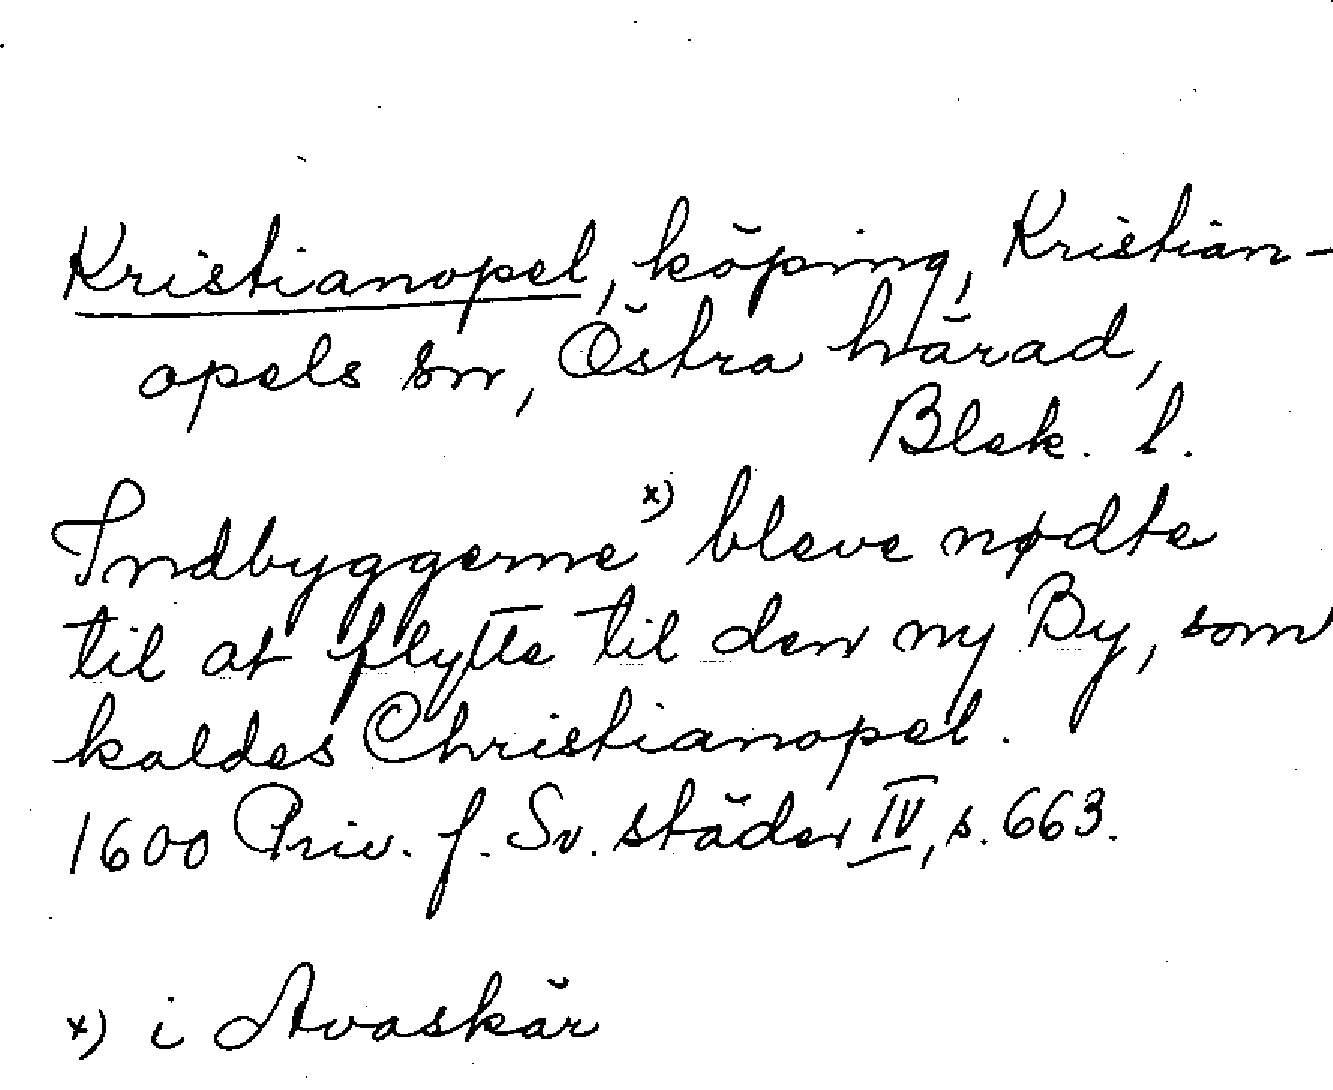 Kristianopel, köping, Kristian-
opels sn, Östra härad,
Blek. l.
Indbyggerne x) bleve nødte
til at flytte til den ny By, som
kaldes Christianopel.
1600 Priv. f. Sv. städer IV, s. 663.
x) i Avaskär